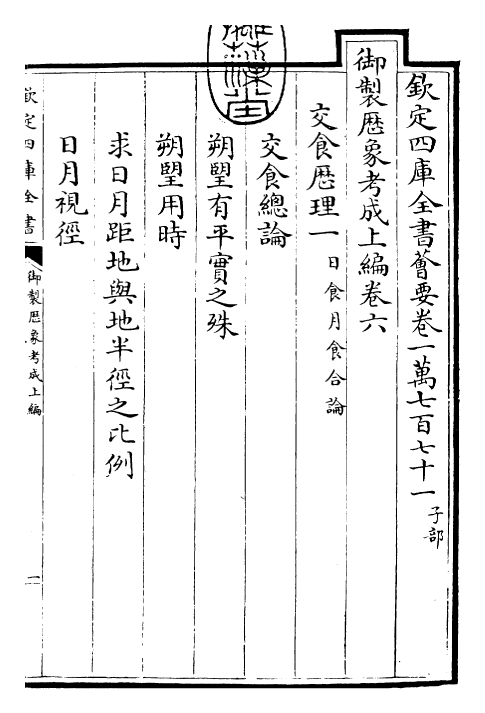 欽定四庫全書薈要卷一萬七百七十一 子部
御製厯象考成上編卷六
交食厯理一 日食月食合論
交食總論
朔朢有平實之殊
朔朢用時
求日月距地與地半徑之比例
日月視徑
欽定四庫全書
御製厯象考成上編
一